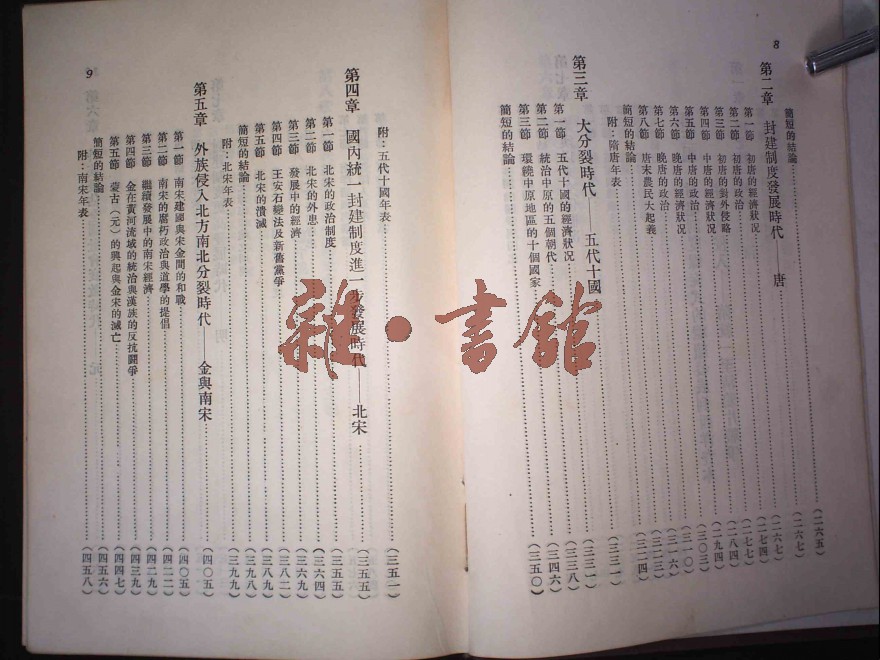 8
簡短的結論……(二六五)
第二章 封建制度發展時代——唐……(二六七)
第一節 初唐的經濟狀況……(二六七)
第二節 初唐的政治……(二七四)
第三節 初唐的對外侵略……(二八四)
第四節 中唐的經濟狀況……(二九四)
第五節 中唐的政治……(三〇三)
第六節 晚唐的經濟狀況……(三一〇)
第七節 晚唐的政治……(三一六)
第八節 唐末農民大起義……(三二三)
簡短的結論……(三二四)
附：隋唐年表……(三三一)
第三章 大分裂時代——五代十國……(三三一)
第一節 五代十國的經濟狀況……(三三八)
第二節 統治中原的五個朝代……(三四六)
第三節 環繞中原地區的十個國家……(三五〇)
附：五代十國年表……(三五一)
第四章 國內統一封建制度進一步發展時代——北宋……(三五五)
第一節 北宋的政治制度……(三五五)
第二節 北宋的外患……(三六四)
第三節 發展中的經濟……(三六九)
第四節 王安石變法及新舊黨爭……(三八二)
第五節 北宋的潰滅……(三八九)
簡短的結論……(三九八)
附：北宋年表……(三九九)
第五章 外族侵入北方南北分裂時代——金與南宋……(四〇五)
第一節 南宋建國與宋金間的和戰……(四〇五)
第二節 南宋的腐朽政治與道學的提倡……(四二二)
第三節 繼續發展中的南宋經濟……(四二九)
第四節 金在黃河流域的統治與漢族的反抗鬪爭……(四三九)
第五節 蒙古（元）的興起與金宋的滅亡……(四四七)
簡短的結論……(四五六)
附：南宋年表……(四五八)
9
雜·書館